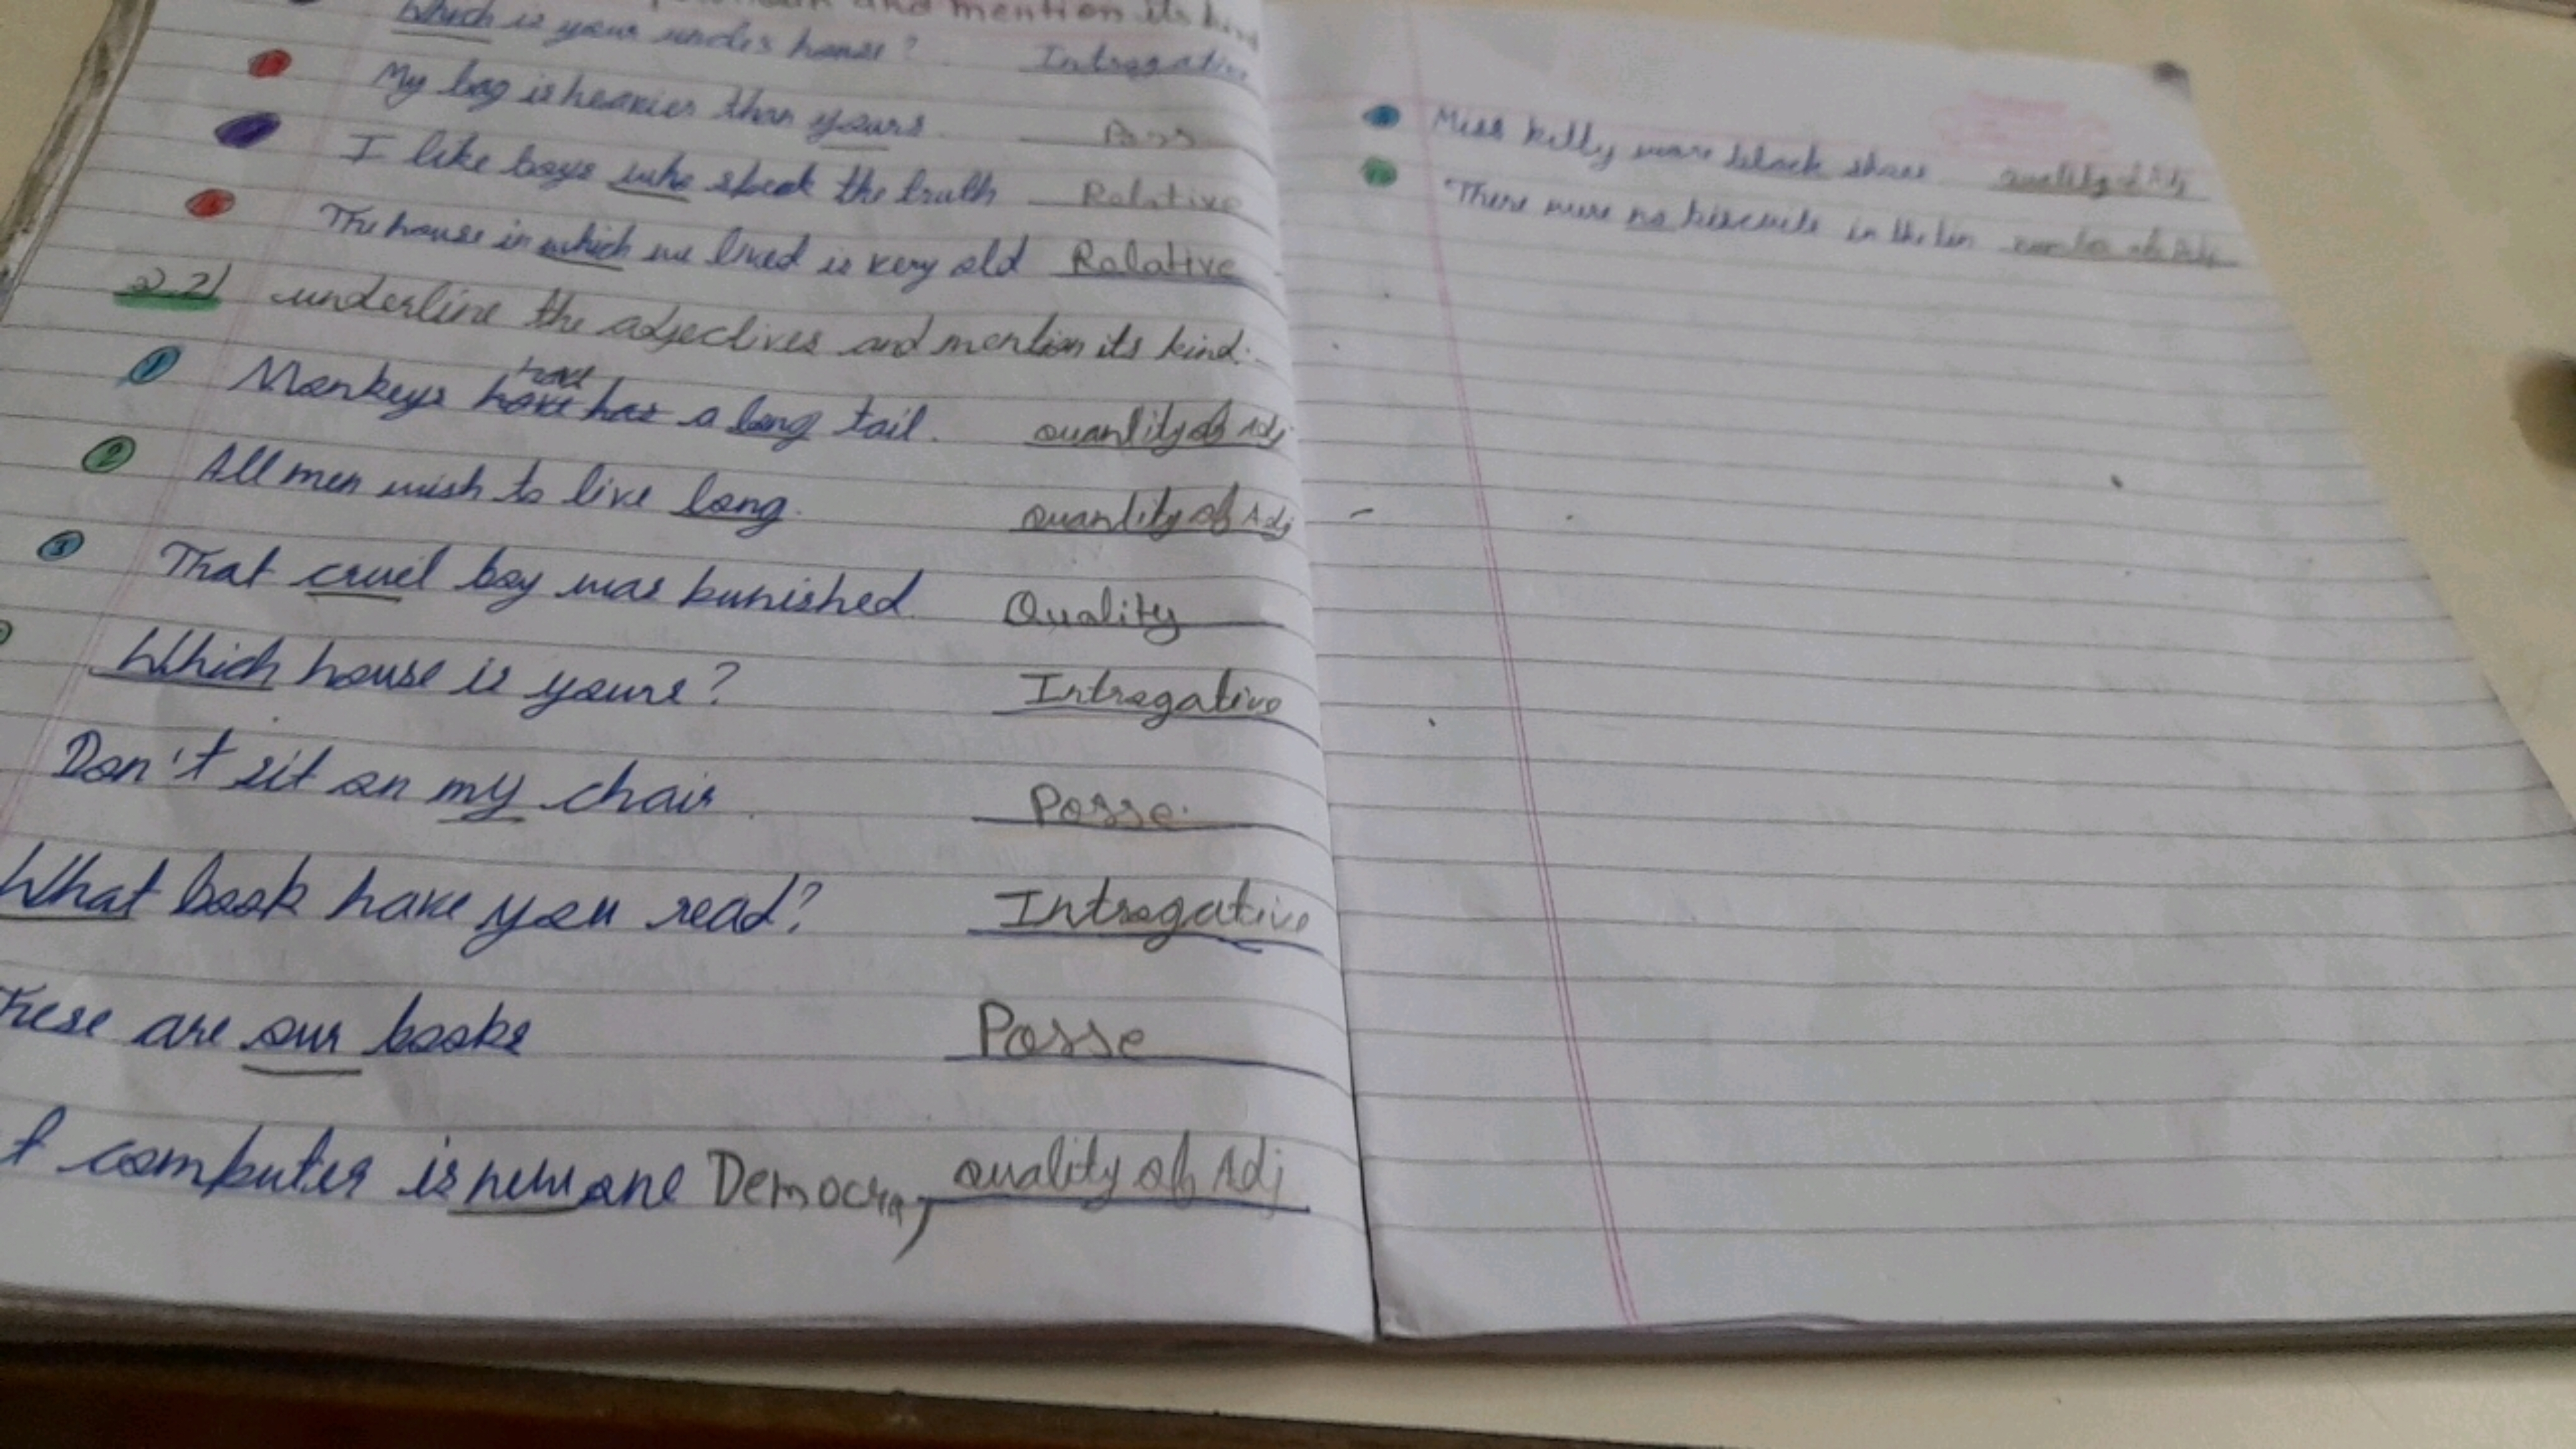 and mention its kind
Which is your uncles house? Intragative
My bag is heavier than yours. Poss
I like boys who speak the truth Relative
The house in which we lived is very old Ralative
Q.2) underline the adjectives and mention its kind.
have
① Monkeys have has a long tail. quantity of Adj
② All men wish to live long. quantity of Adj
③ That cruel boy was punished. Quality
Which house is yours? Intragative
Don't sit on my chair. Posse.
What book have you read? Intragative
These are our books Posse
computer is new one Democra quality of Adj
Miss Kitty wore black shoes quality of Adj
There were no biscuits in the tin number of Adj